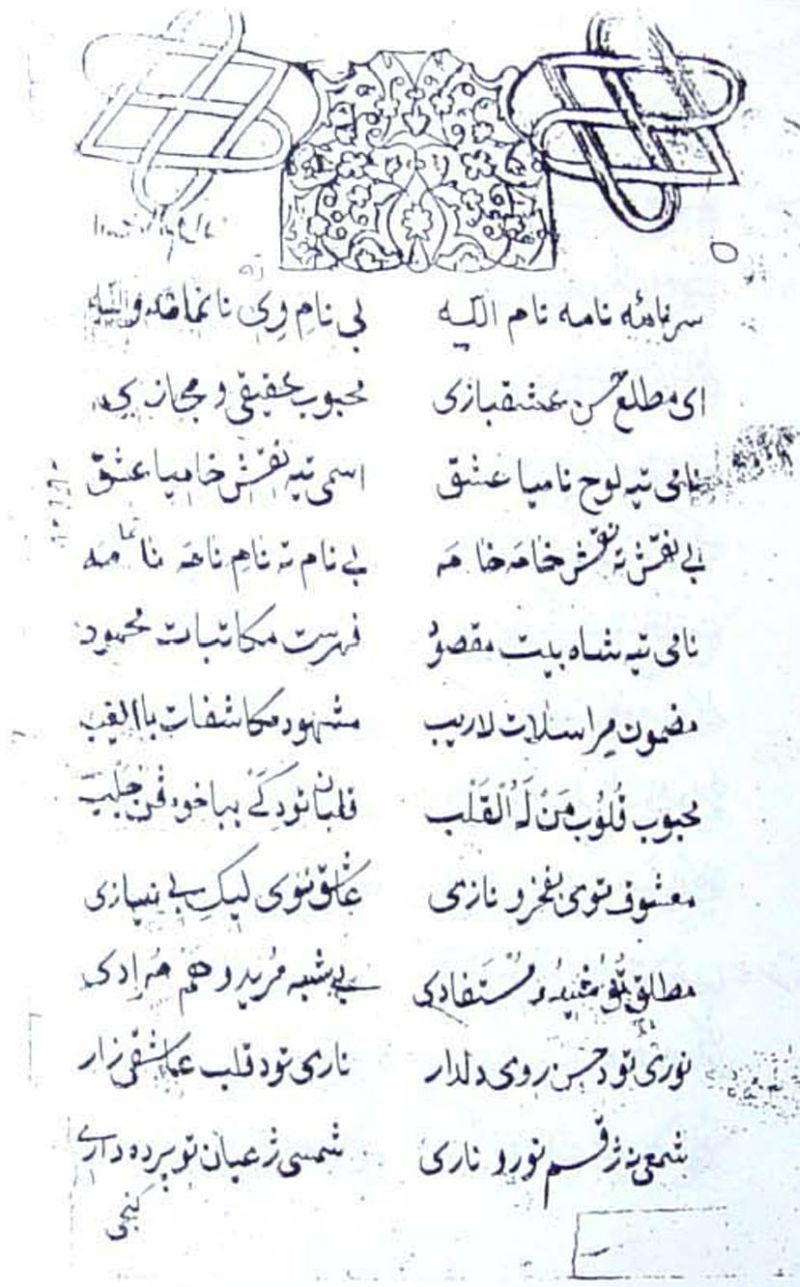 سرنامئه نامه نام الله بی نامِ وی ناتمامه والله
ای مطلع حسن عشقبازی محبوب حقیقی و مجازی
نامی ته لوح نامیا عشق اسمی ته نقش خامیا عشق
بی نقش ته نقش خامه خامه بی نام ته نامِ نامه ناتمامه
نامی ته شاه بیت مقصود فهرست مکاتبات محمود
مضمون مراسلات لاریب مشهود مکاشفات باالغیب
محبوب قُلُوب مَنْ لَهُ الْقَلْب قلبان تودکی بباخوه جلب
معشوق توی بفخر و نازی عاشق توی لیک بی نیازی
مطلق تُو مُفید و مُستَفادی بی شبه مُرید و هَم مُرادی
نوری تو د حسن روی دلدار ناری تو د قلب عاشقی زار
شمعی نه ژ قسم نور و ناری شمسی ژ عیان تو پرده داری
گنجی